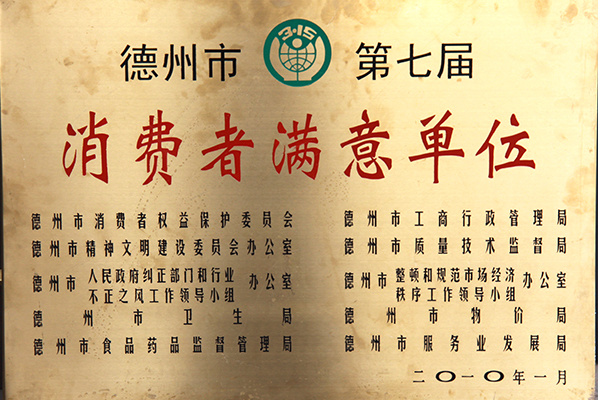 德州市 3·15 第七届
消费者满意单位
德州市消费者权益保护委员会
德州市精神文明建设委员会办公室
德州市人民政府纠正部门和行业不正之风工作领导小组办公室
德州市卫生局
德州市食品药品监督管理局
德州市工商行政管理局
德州市质量技术监督局
德州市整顿和规范市场经济秩序工作领导小组办公室
德州市物价局
德州市服务业发展局
二〇一〇年一月